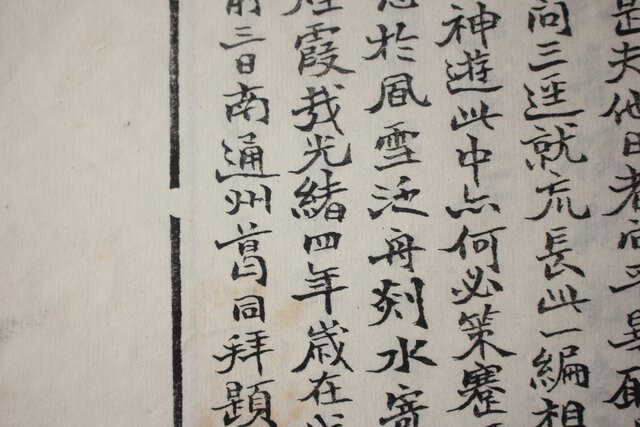 是夫他日者
問三逕就荒長此一編相
神遊此中亦何必策蹇
於風雪泛舟剡水
霞哉光緒四年歲在
前三日南通州葛同拜題